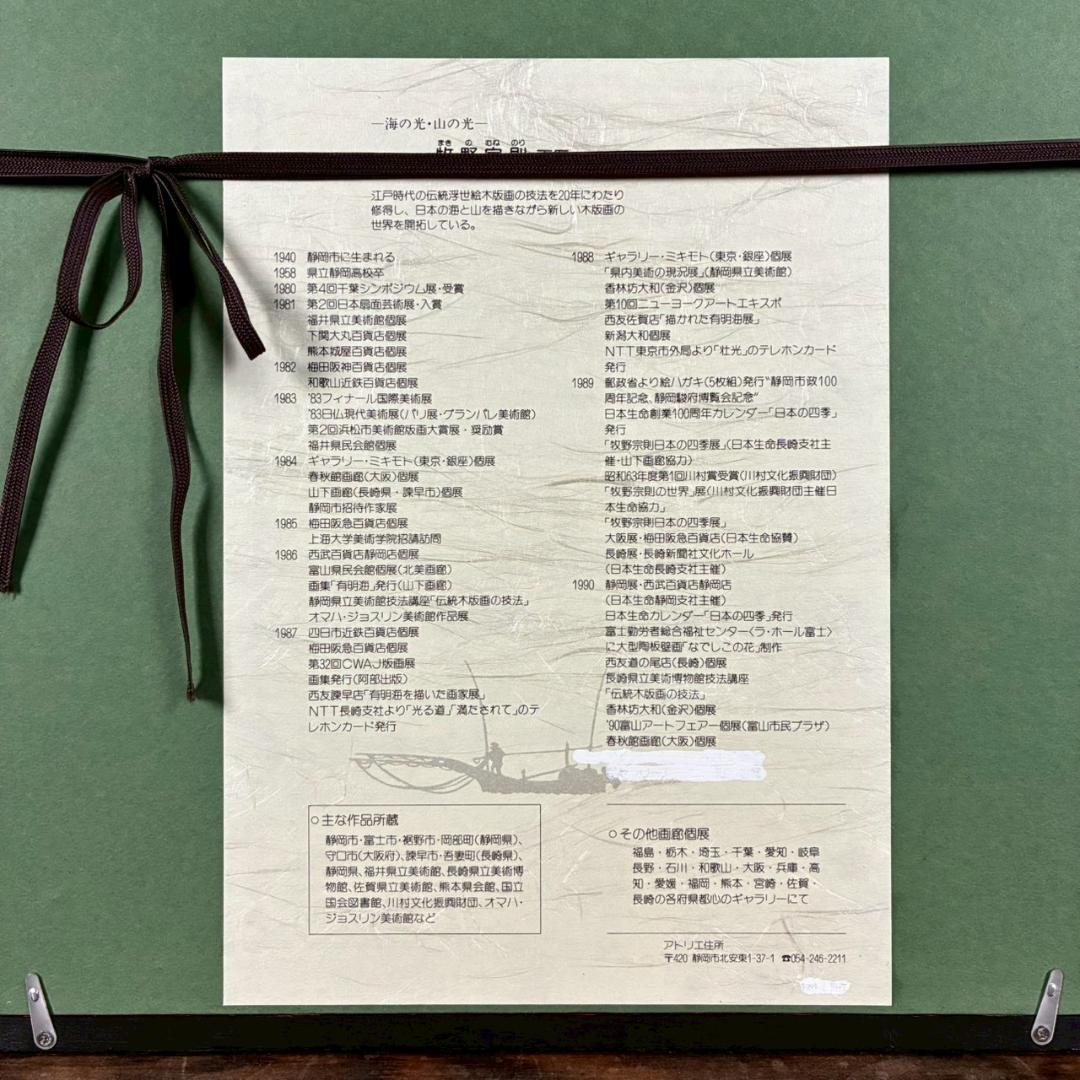 ―海の光・山の光―
まき の むね のり
牧野宗則
江戸時代の伝統浮世絵木版画の技法を20年にわたり
修得し、日本の海と山を描きながら新しい木版画の
世界を開拓している。
1940 静岡市に生まれる
1958 県立静岡高校卒
1980 第4回千葉シンポジウム展・受賞
1981 第2回日本扇面芸術展・入賞
福井県立美術館個展
下関大丸百貨店個展
熊本城屋百貨店個展
1982 梅田阪神百貨店個展
和歌山近鉄百貨店個展
1983 '83フィナール国際美術展
'83日仏現代美術展(パリ展・グランパレ美術館)
第2回浜松市美術館版画大賞展・奨励賞
福井県民会館個展
1984 ギャラリー・ミキモト(東京・銀座)個展
春秋館画廊(大阪)個展
山下画廊(長崎県・諫早市)個展
静岡市招待作家展
1985 梅田阪急百貨店個展
上海大学美術学院招請訪問
1986 西武百貨店静岡店個展
富山県民会館個展(北美画廊)
画集「有明海」発行(山下画廊)
静岡県立美術館技法講座「伝統木版画の技法」
オマハ・ジョスリン美術館作品展
1987 四日市近鉄百貨店個展
梅田阪急百貨店個展
第32回CWAJ版画展
画集発行(阿部出版)
西友諫早店「有明海を描いた画家展」
NTT長崎支社より「光る道」「満たされて」のテ
レホンカード発行
1988 ギャラリー・ミキモト(東京・銀座)個展
「県内美術の現況展」(静岡県立美術館)
香林坊大和(金沢)個展
第10回ニューヨークアートエキスポ
西友佐賀店「描かれた有明海展」
新潟大和個展
NTT東京市外局より「壮光」のテレホンカード
発行
1989 郵政省より絵ハガキ(5枚組)発行"静岡市政100
周年記念、静岡駿府博覧会記念"
日本生命創業100周年カレンダー「日本の四季」
発行
「牧野宗則日本の四季展」(日本生命長崎支社主
催・山下画廊協力)
昭和63年度第1回川村賞受賞(川村文化振興財団)
「牧野宗則の世界」展(川村文化振興財団主催日
本生命協力」
「牧野宗則日本の四季展」
大阪展・梅田阪急百貨店(日本生命協賛)
長崎展・長崎新聞社文化ホール
(日本生命長崎支社主催)
1990 静岡展・西武百貨店静岡店
(日本生命静岡支社主催)
日本生命カレンダー「日本の四季」発行
富士勤労者総合福祉センター〈ラ・ホール富士〉
に大型陶板壁画「なでしこの花」制作
西友道の尾店(長崎)個展
長崎県立美術博物館技法講座
「伝統木版画の技法」
香林坊大和(金沢)個展
'90富山アートフェアー個展(富山市民プラザ)
春秋館画廊(大阪)個展
○主な作品所蔵
静岡市・富士市・裾野市・岡部町(静岡県)、
守口市(大阪府)、諫早市・吾妻町(長崎県)、
静岡県、福井県立美術館、長崎県立美術博
物館、佐賀県立美術館、熊本県会館、国立
国会図書館、川村文化振興財団、オマハ・
ジョスリン美術館など
○その他画廊個展
福島・栃木・埼玉・千葉・愛知・岐阜
長野・石川・和歌山・大阪・兵庫・高
知・愛媛・福岡・熊本・宮崎・佐賀・
長崎の各府県都心のギャラリーにて
アトリエ住所
〒420 静岡市北安東1-37-1 ☎054-246-2211